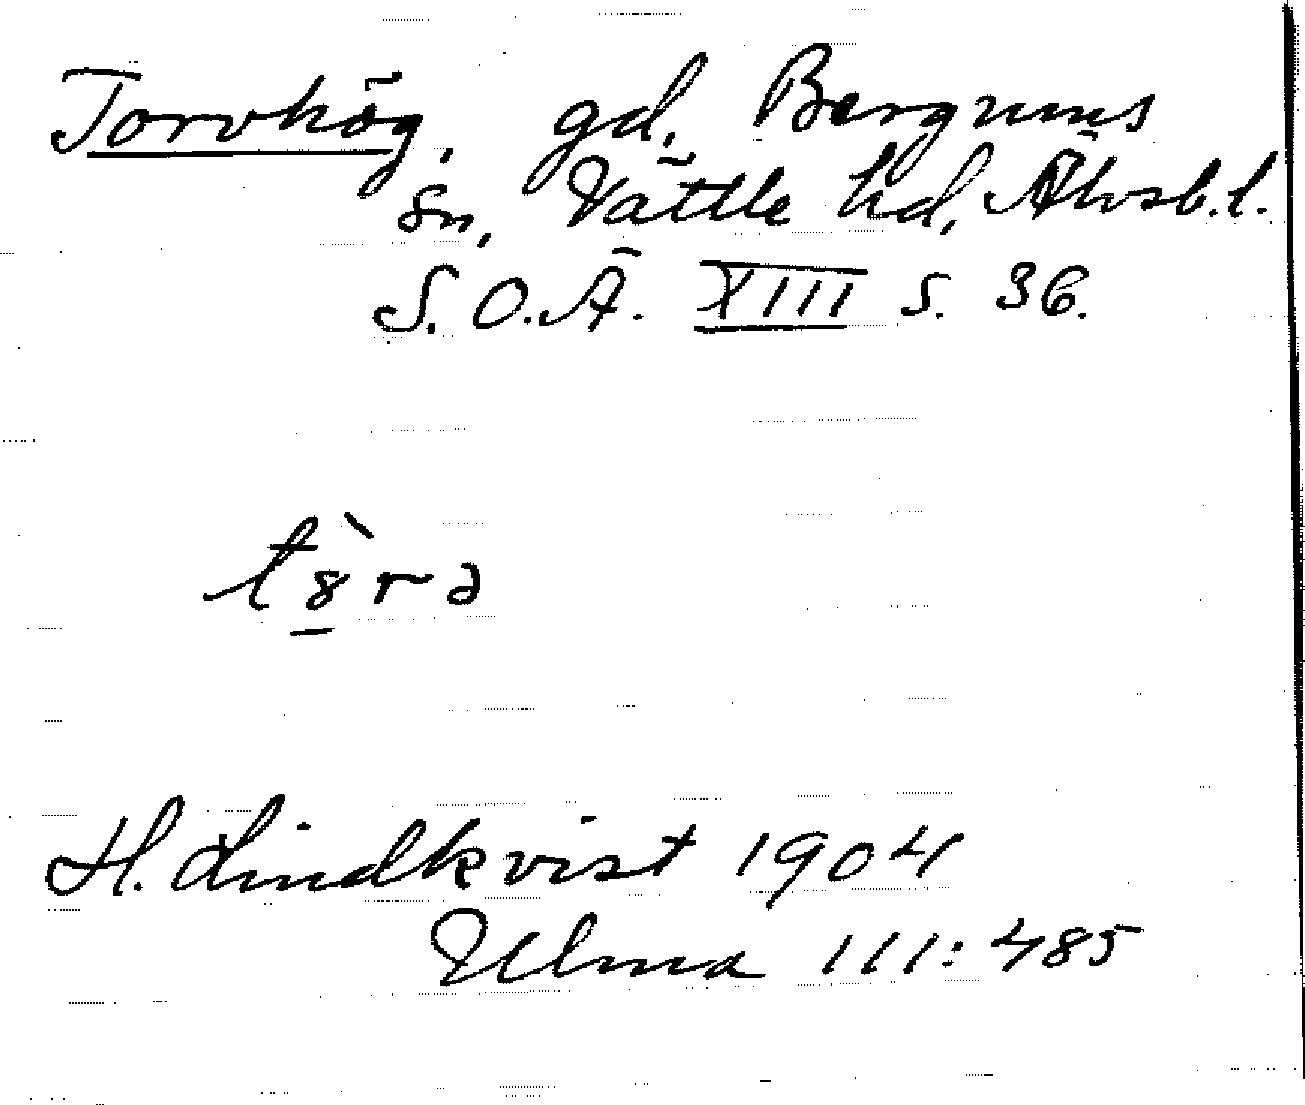 Torvhög, gd, Bergums
sn, Vättle hd, Älvsb.l.
S.O.Ä. XIII s. 36.
t8̠̀rə
H. Lindkvist 1904
Ulma 111:485